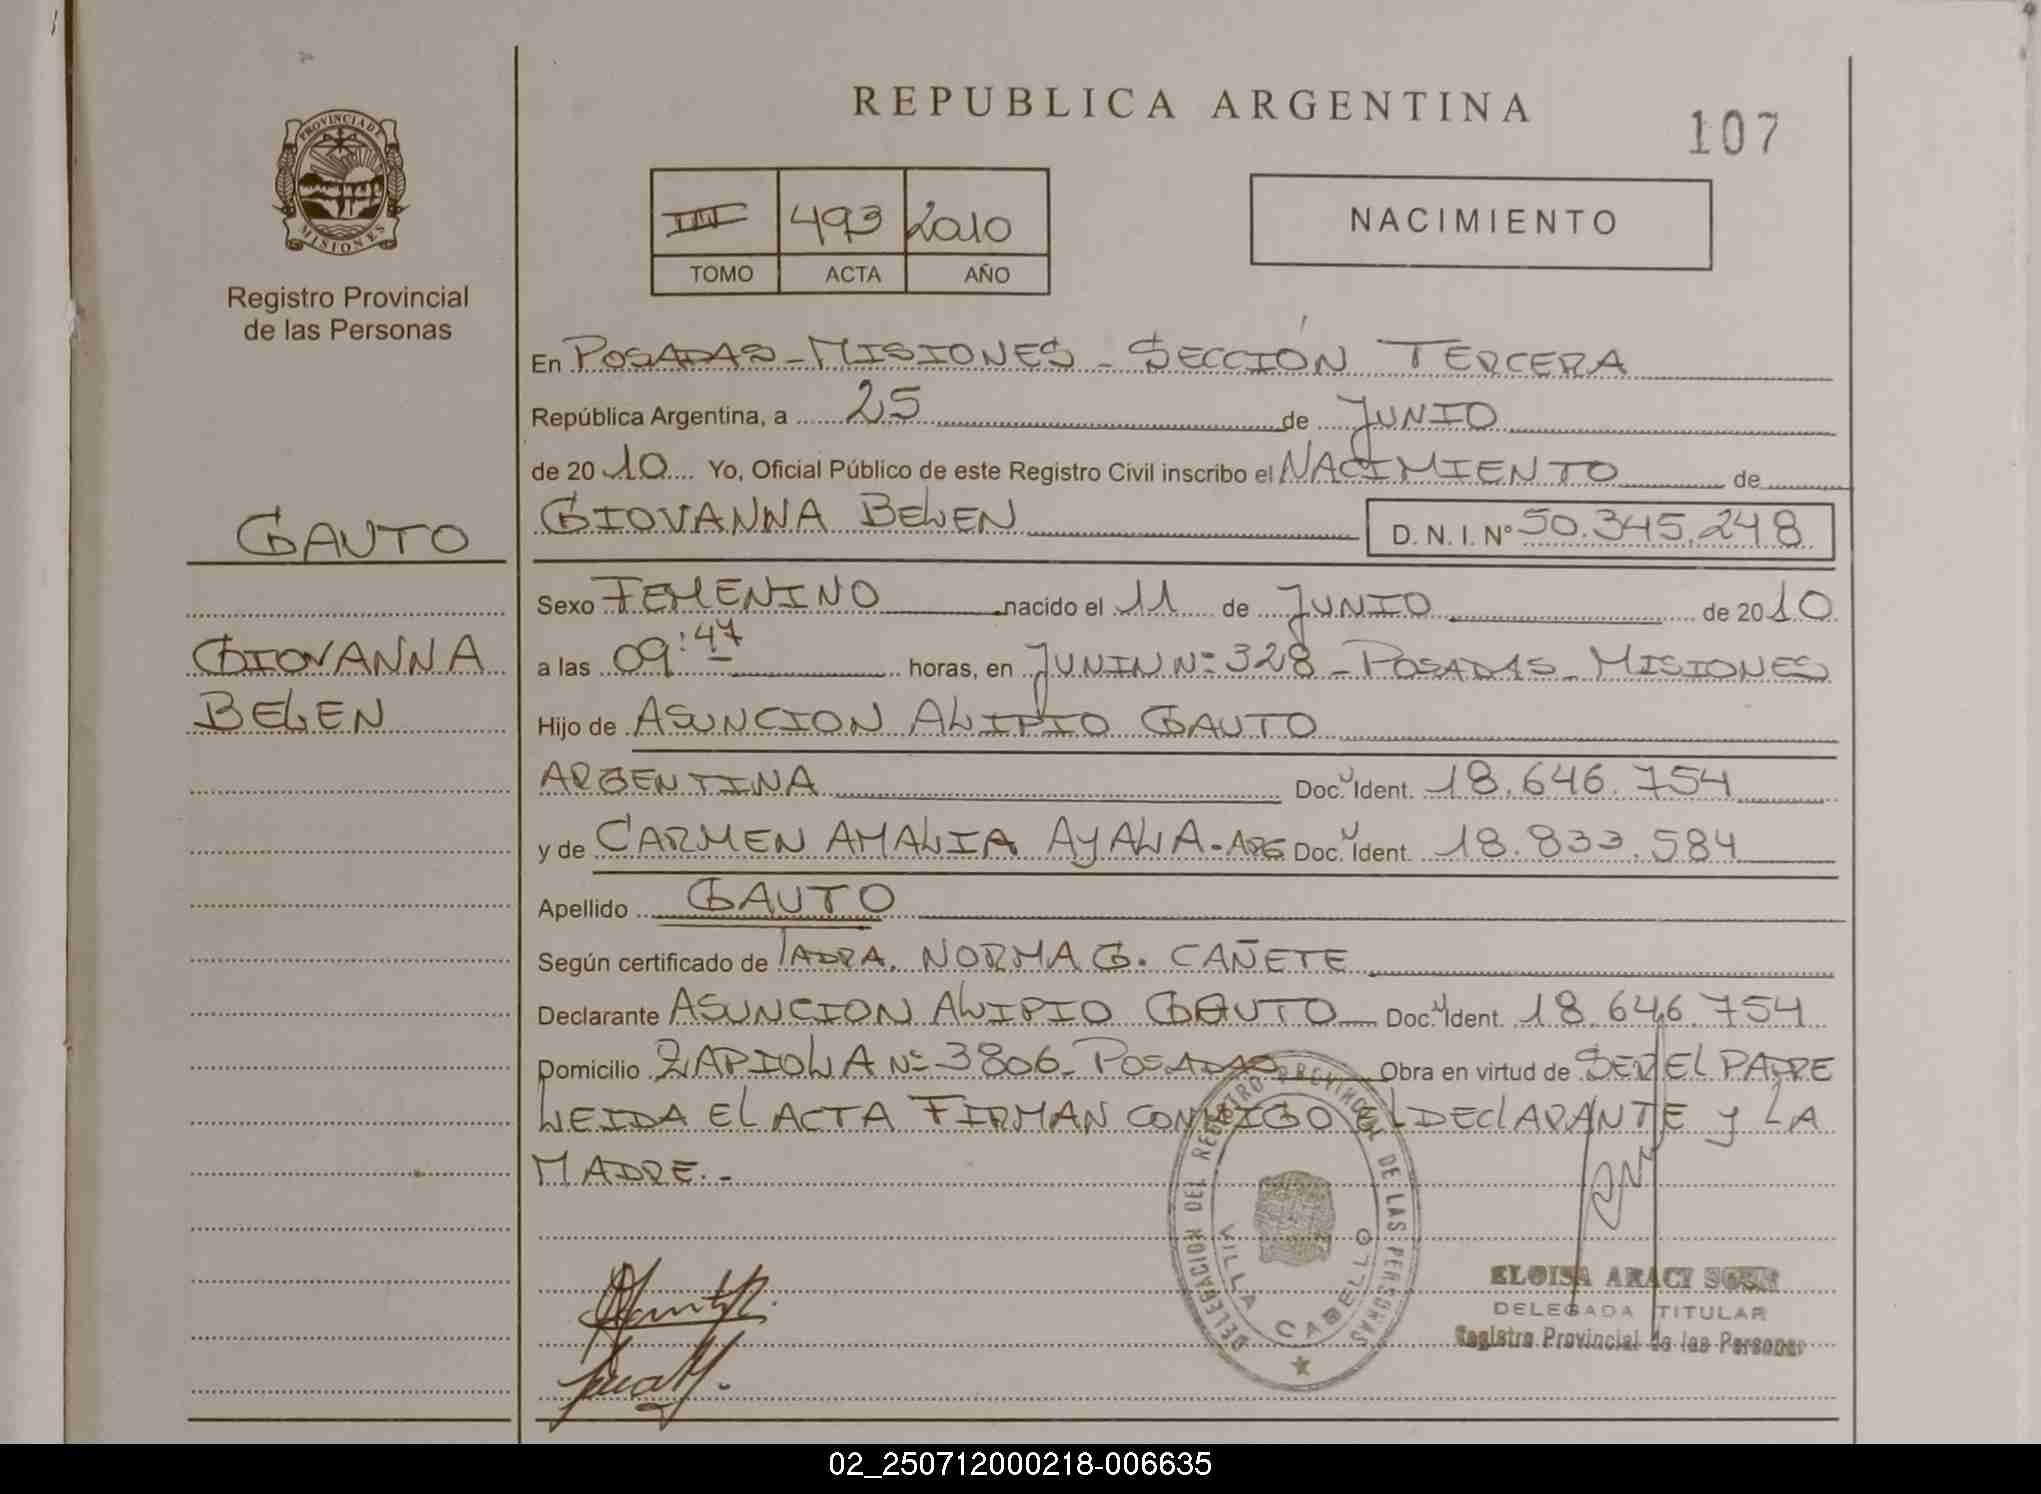 REPUBLICA ARGENTINA
107
PROVINCIA DE
MISIONES
Registro Provincial
de las Personas
III 493 2010
TOMO ACTA AÑO
NACIMIENTO
En POSADAS - MISIONES - SECCIÓN TERCERA
República Argentina, a 25 de JUNIO
de 20 10 Yo, Oficial Público de este Registro Civil inscribo el NACIMIENTO de
GAUTO
GIOVANNA BELEN D. N. I. N° 50.345.248
Sexo FEMENINO nacido el 11 de JUNIO de 20 10
GIOVANNA
BELEN
a las 09:47 horas, en JUNIN Nº 328 - POSADAS - MISIONES
Hijo de ASUNCION ALIPIO GAUTO
ARGENTINA Doc. Ident. 18.646.754
y de CARMEN AMALIA AYALA - ARG Doc. Ident. 18.833.584
Apellido GAUTO
Según certificado de NORMA G. CAÑETE
Declarante ASUNCION ALIPIO GAUTO Doc. Ident. 18.646.754
Domicilio ZAPIOLA Nº 3806 - POSADAS Obra en virtud de SER EL PADRE
LEIDA EL ACTA FIRMAN CONMIGO EL DECLARANTE Y LA
MADRE.-
DELEGACION DEL REGISTRO PROVINCIAL DE LAS PERSONAS
VILLA CABELLO
ELOISA ARACI
DELEGADA TITULAR
Registro Provincial de las Personas
02_250712000218-006635